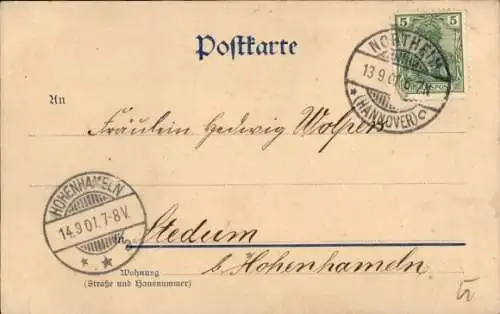 Postkarte
5 5
NORTHEIM
13.9.01.6-7N
*(HANNOVER)c
An
Fräulein Hedwig Wolpers
HOHENHAMELN
14.9.01.7-8V.
* *
in Stedum
b. Hohenhameln
Wohnung
(Straße und Hausnummer)